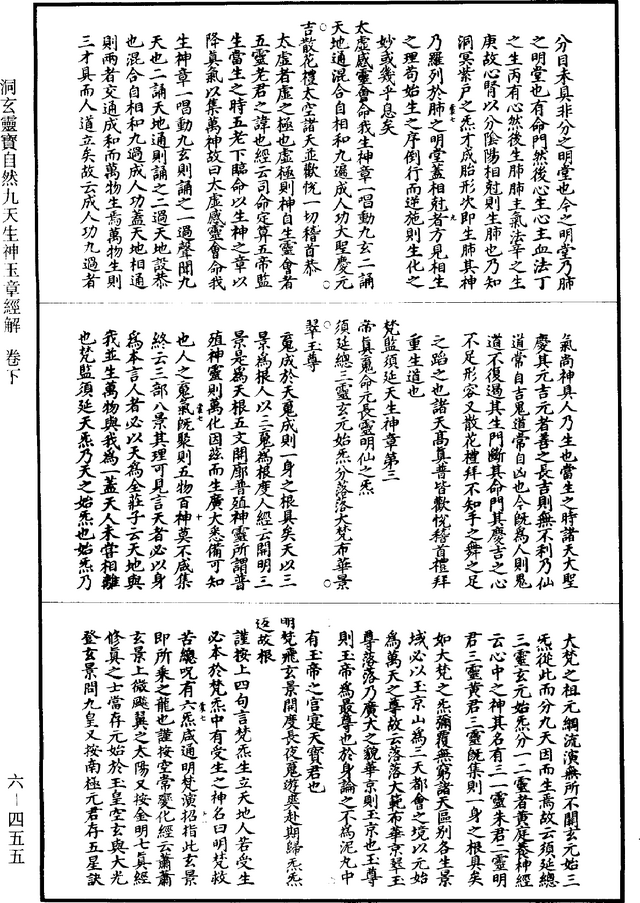 洞玄靈寶自然九天生神玉章經解　卷下
六—四五五
分日未具非分之明堂也今之明堂乃肺
之明堂也有命門然後心生心主血法丁
之生丙有心然後生肺肺主氣法辛之生
庚故心腎以分陰陽相尅則生肺也乃知
洞冥紫戶之炁才成胎形次即生肺其神
乃羅列於肺之明堂蓋相尅者方見相生
之理苟始生之序倒行而逆施則生化之
妙或幾乎息矣
太虛感靈會命我生神章一唱動九玄二誦
天地通混合自相和九過成人功大聖慶元
吉散花禮太空諸天並歡悅一切稽首恭
太虛者虛之極也虛極則神自生靈會者
五靈老君之諱也經云司命定算五帝監
生當生之時五老下臨命以生神之章以
降真氣以集萬神故曰太虛感靈會命我
生神章一唱動九玄則誦之一過聲聞九
天也二誦天地通則誦之二過天地設恭
也混合自相和九過成人功蓋天地相通
則兩者交通成和而萬物生焉萬物生則
三才具而人道立矣故云成人功九過者
氣尚神具人乃生也當生之時諸天大聖
慶其元吉元者善之長吉則無不利乃仙
道常自吉鬼道常自凶也今既為人則鬼
道不復過其生門斷其命門其慶吉之心
不足形容又散花禮拜不知手之舞之足
之蹈之也諸天高真普皆歡悅稽首禮拜
重生道也
梵監須延天生神章第三
帝真䰟命元長靈明仙之炁
須延總三靈玄元始炁分落落大梵布華景
翠玉尊
䰟成於天䰟成則一身之根具矣天以三
景為根人以三䰟為根度人經云開明三
景是為天根五文開廓普殖神靈所謂普
殖神靈則萬化因茲而生廣大悉備可知
也人之䰟氣既聚則五物百神莫不咸集
終云三部八景其理可見言天者必以身
為本言人者必以天為全莊子云天地與
我並生萬物與我為一蓋天人未嘗相離
也梵監須延天炁乃天之始炁也始炁乃
大梵之祖元綱流演無所不關玄元始三
炁從此而分九天因而生焉故云須延總
三靈玄元始炁分一二靈者黃庭養神經
云心中之神其名有三一靈朱君二靈明
君三靈黃君三靈既集則一身之根具矣
如大梵之炁彌覆無窮諸天區別各生景
域必以玉京山為三天都會之境以元始
為萬天之尊故云落落大範布華京翠玉
尊落落乃廣大之貌華京則玉京也玉尊
則玉帝為最尊也於身論之不為泥丸中
有玉帝之宮寔天寶君也
明梵飛玄景開度長夜䰟遊爽赴期歸炁炁
返故根
謹按上四句言梵炁生立天地人若受生
必本於梵炁中有受生之神名曰明梵救
苦總呪有六炁咸通明梵演招指此玄景
即所乘之龍也謹按空常變化經云蕭蕭
玄景上微飈翼之太陽又按金明七真經
修真之士當存元始於玉皇空玄與大光
登玄景問九皇又按南極元君存五星訣